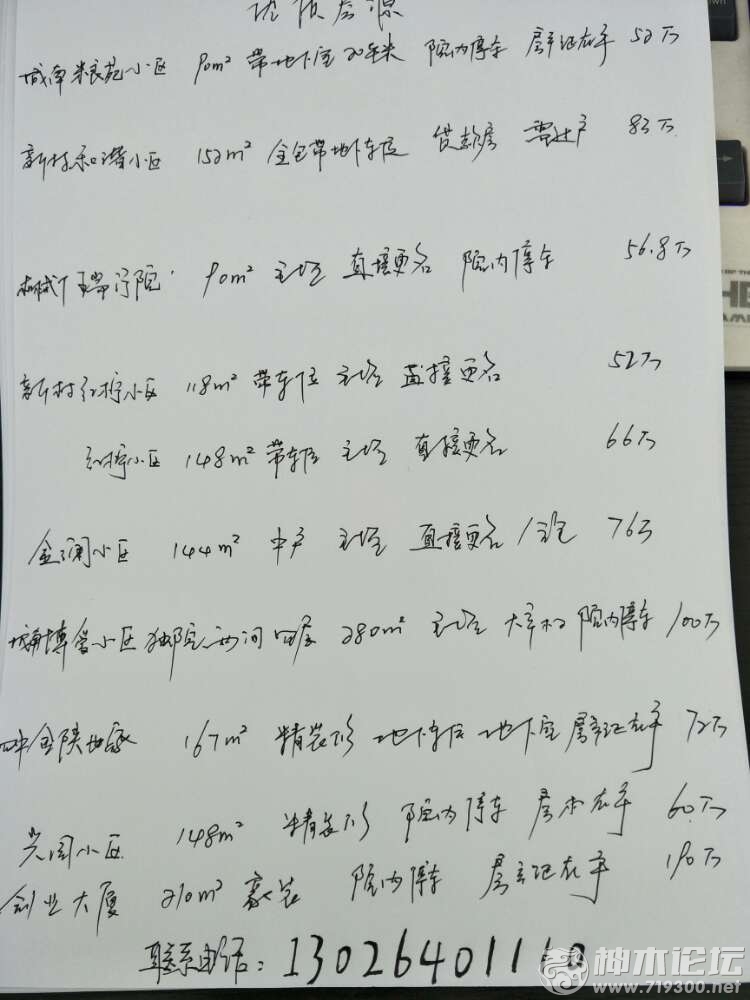 优质房源
城南粮苑小区 90m² 带地下室20平米 院内停车 房产证在手 52万
新村和谐小区 152m² 全包带地下车位 贷款房 需过户 83万
瑞 院 90m² 毛坯 直接更名 院内停车 56.8万
新村红柠小区 118m² 带车位 毛坯 直接更名 52万
红柠小区 148m² 带车位 毛坯 直接更名 66万
金澜小区 144m² 中户 毛坯 直接更名/全包 76万
城南博爱小区 独院 两间四层 280m² 毛坯 大产权 院内停车 100万
金陕地家 167m² 精装修 地下车位 地下室 房产证在手 72万
小区 148m² 精装修 院内停车 房本在手 60万
创业大厦 210m² 豪装 院内停车 房产证在手 190万
联系电话: 130264011
神木论坛
www.719300.net